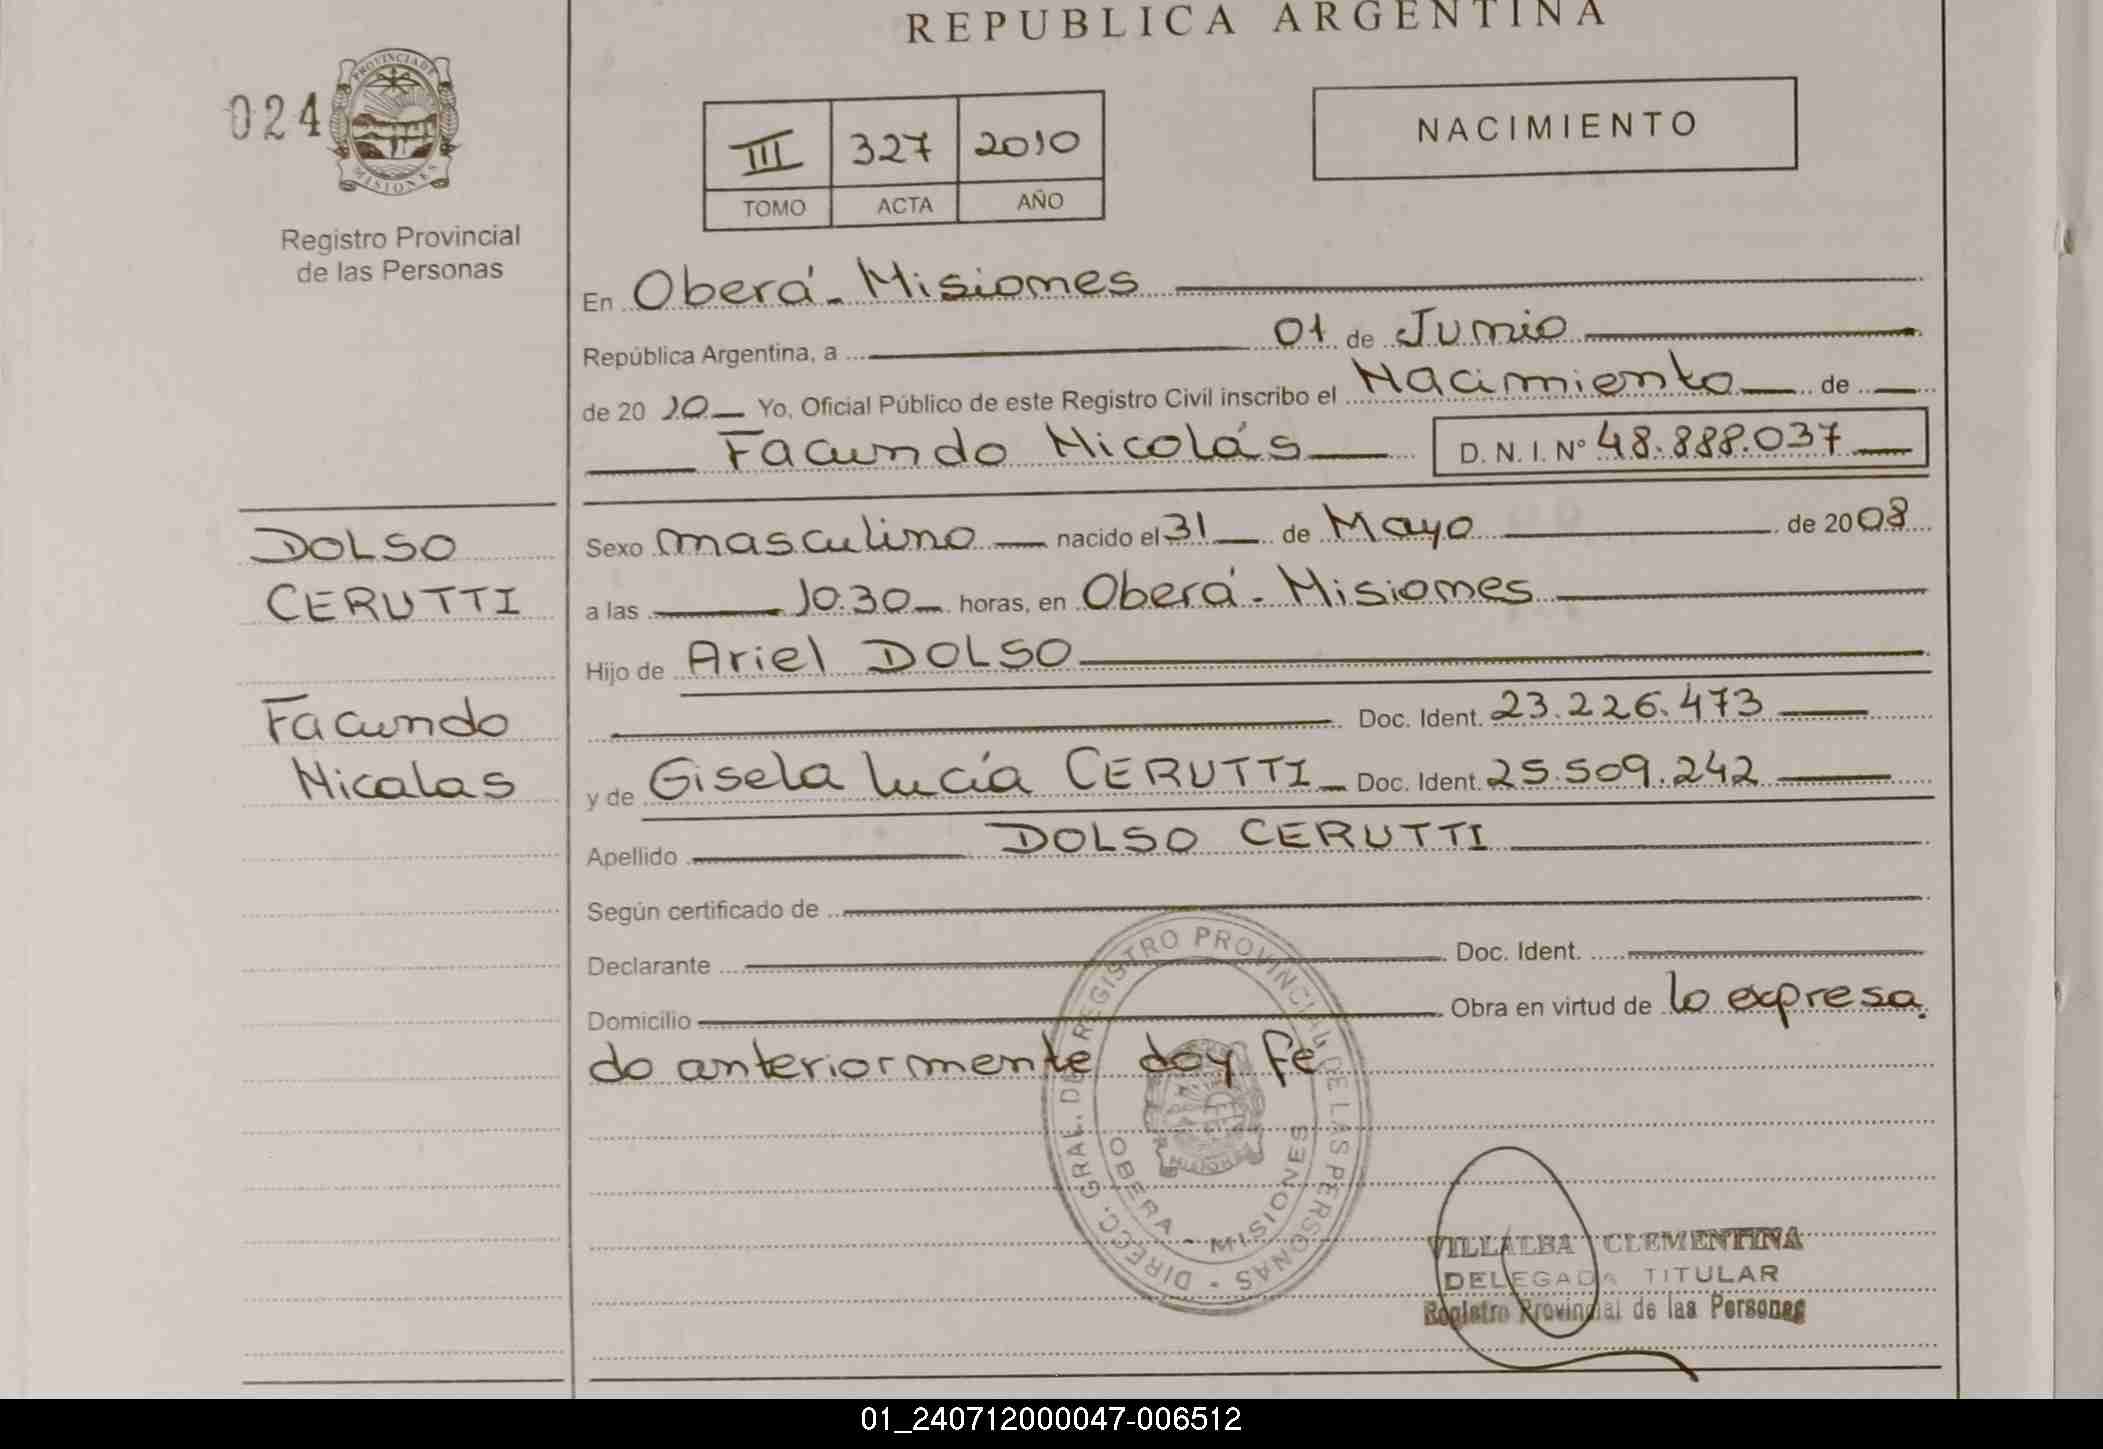 REPUBLICA ARGENTINA
024
PROVINCIA DE
MISIONES
Registro Provincial
de las Personas
III 327 2010
TOMO ACTA AÑO
NACIMIENTO
En Oberá - Misiones
República Argentina, a 01 de Junio
de 20 10 Yo, Oficial Público de este Registro Civil inscribo el Nacimiento de
Facundo Nicolás D. N. I. Nº 48.888.037
Sexo masculino nacido el 31 de Mayo de 2008
a las 10:30 horas, en Oberá - Misiones
Hijo de Ariel DOLSO
Doc. Ident. 23.226.473
y de Gisela Lucía CERUTTI Doc. Ident. 25.509.242
Apellido DOLSO CERUTTI
Según certificado de
Declarante Doc. Ident.
Domicilio Obra en virtud de lo expresa
do anteriormente doy fe
DOLSO
CERUTTI
Facundo
Nicolas
DIRECC. GRAL. DEL REGISTRO PROVINCIAL DE LAS PERSONAS
OBERA - MISIONES
VILLALBA CLEMENTINA
DELEGADA TITULAR
Registro Provincial de las Personas
01_240712000047-006512